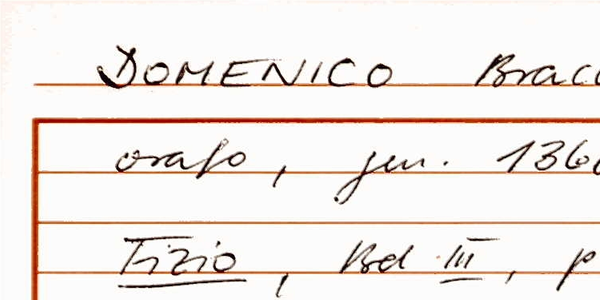 DOMENICO Bracc
orafo, gen. 1366
Tizio, Bd III, p